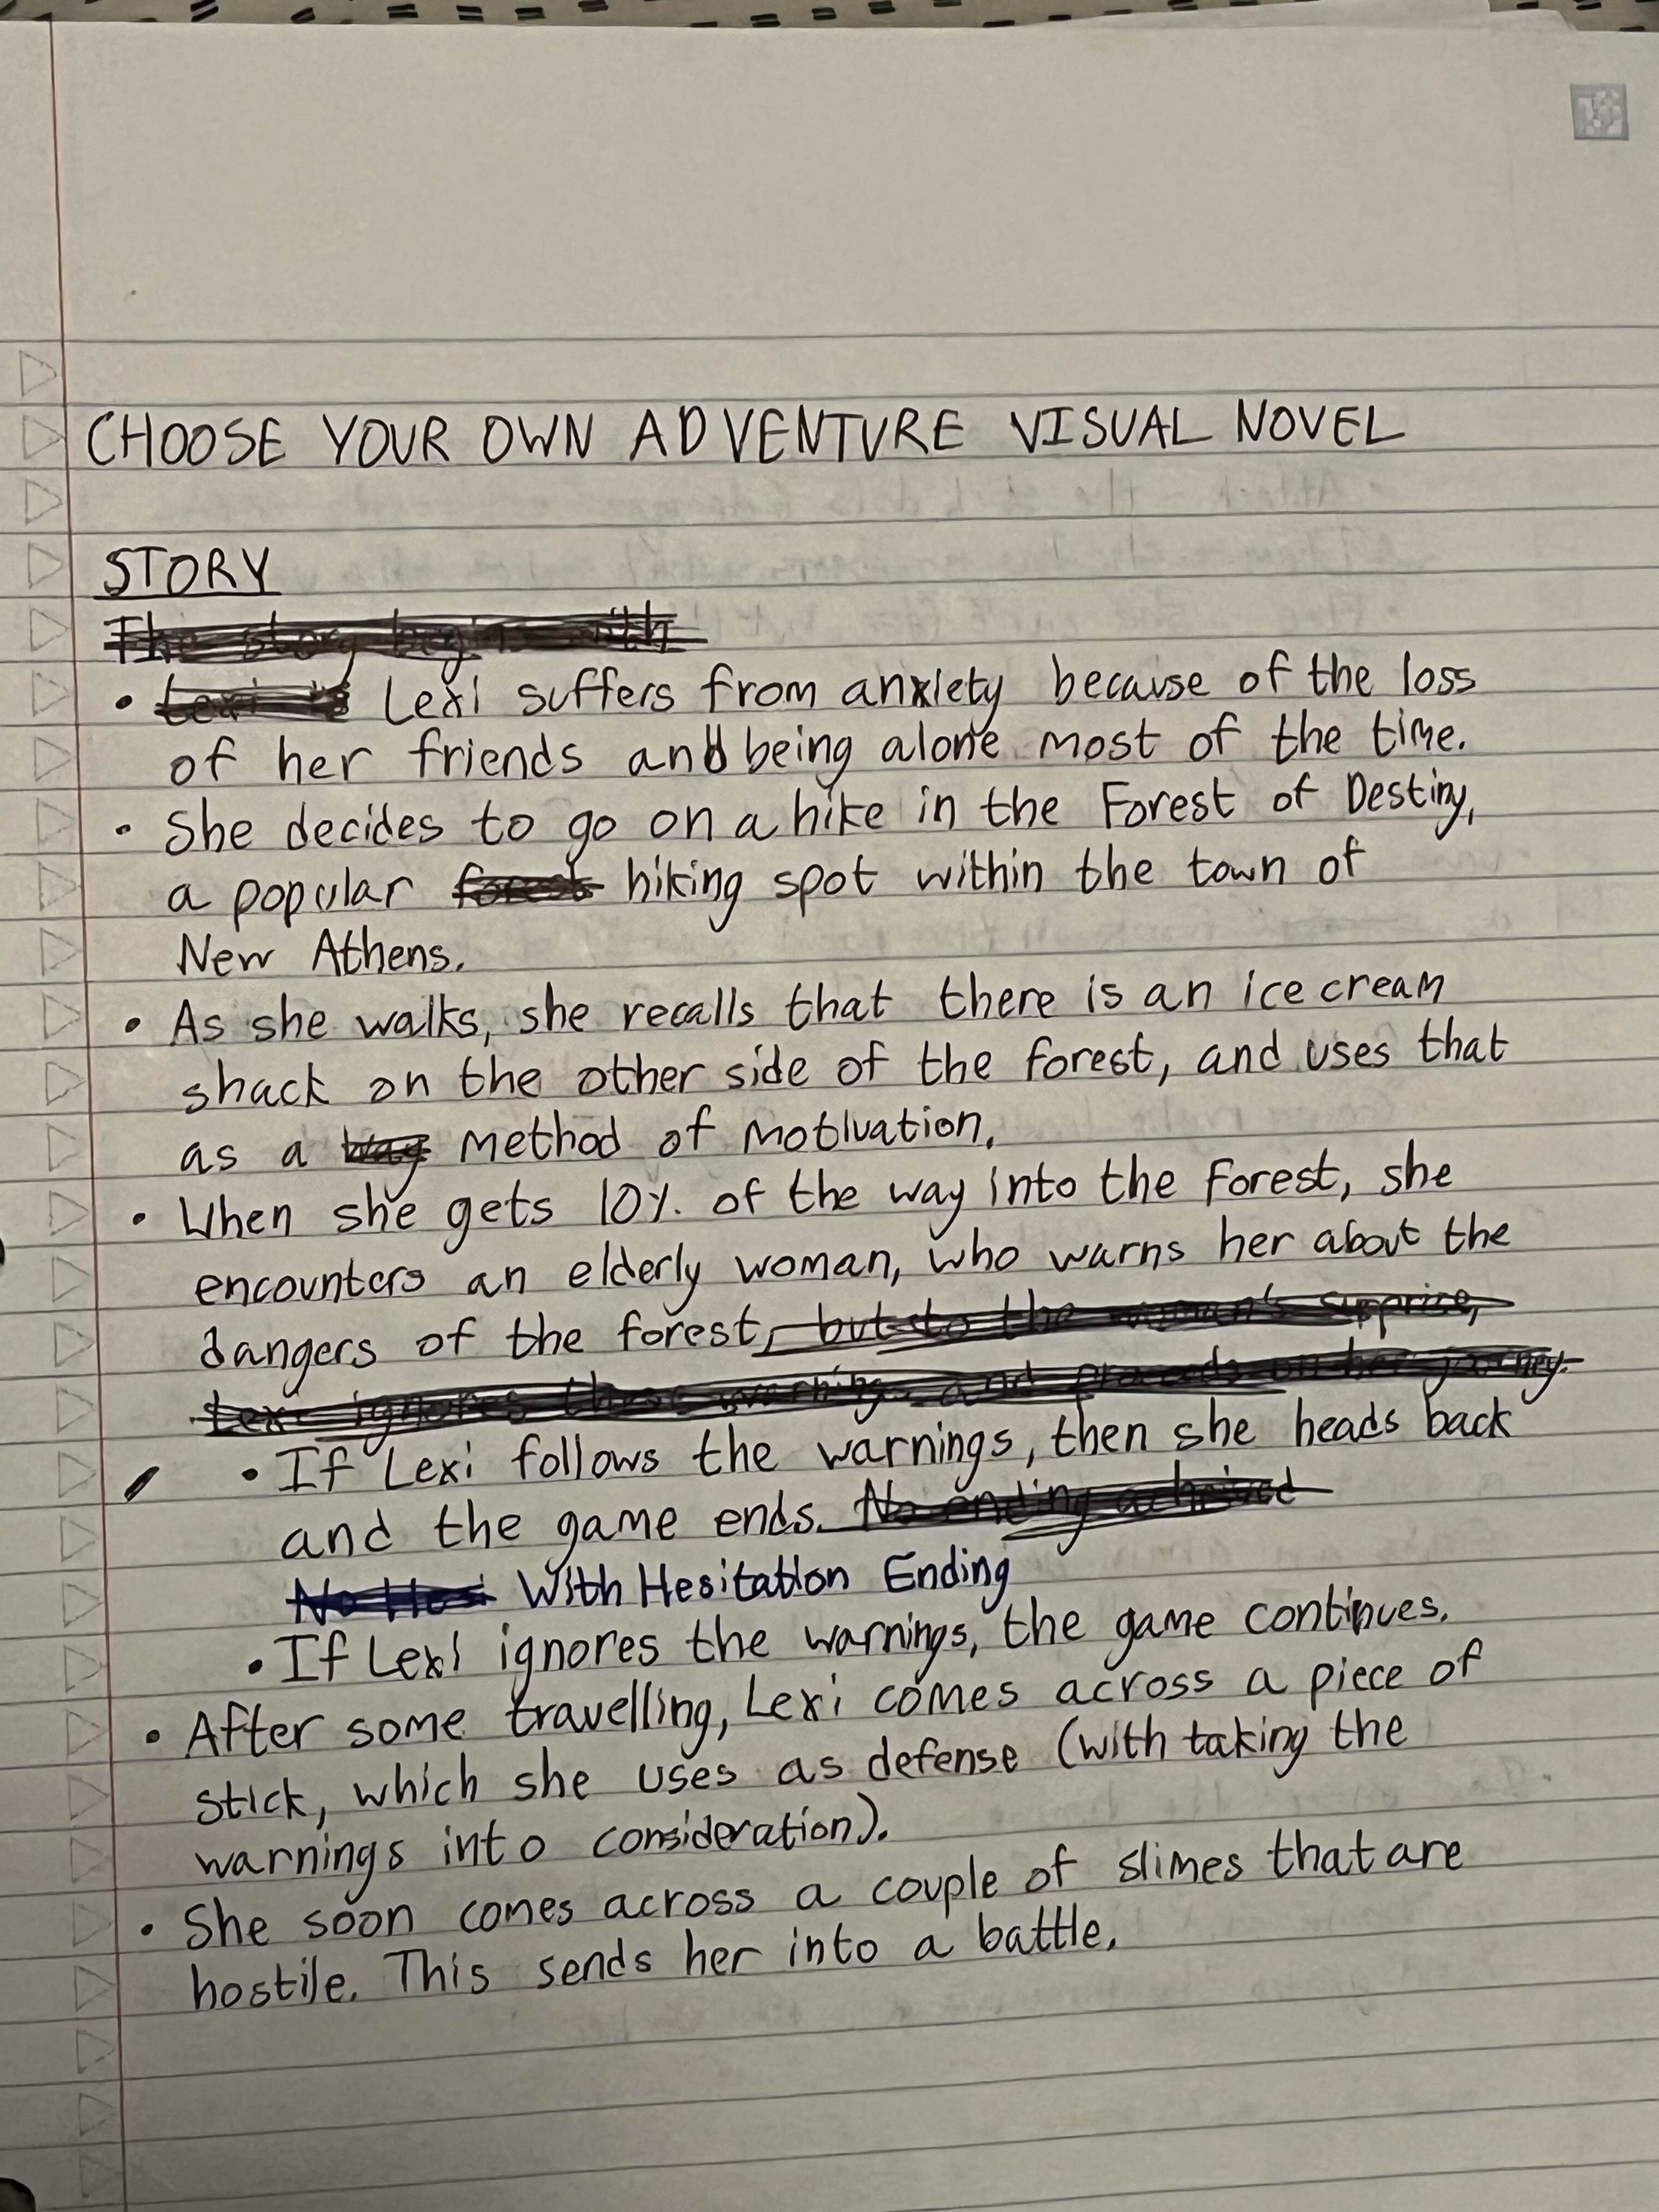 CHOOSE YOUR OWN ADVENTURE VISUAL NOVEL
STORY
The story begins with
• Lexi is Lexi suffers from anxiety because of the loss
of her friends and being alone most of the time.
• She decides to go on a hike in the Forest of Destiny,
a popular forest hiking spot within the town of
New Athens.
• As she walks, she recalls that there is an ice cream
shack on the other side of the forest, and uses that
as a way method of motivation.
• When she gets 10% of the way into the forest, she
encounters an elderly woman, who warns her about the
dangers of the forest, but to the woman's surprise,
Lexi ignores these warnings and proceeds on her journey.
• If Lexi follows the warnings, then she heads back
and the game ends. No ending achieved
With Hesitation Ending
• If Lexi ignores the warnings, the game continues.
• After some travelling, Lexi comes across a piece of
stick, which she uses as defense (with taking the
warnings into consideration).
• She soon comes across a couple of slimes that are
hostile. This sends her into a battle.